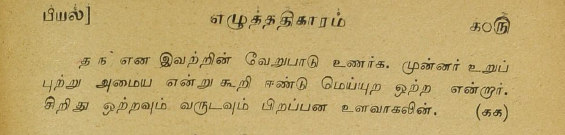 பியல்] எழுத்ததிகாரம் க0ரு
த ந என இவற்றின் வேறுபாடு உணர்க. முன்னர் உறுப்
புற்று அமைய என்று கூறி ஈண்டு மெய்யுற ஒற்ற என்றார்.
சிறிது ஒற்றவும் வருடவும் பிறப்பன உளவாகலின். (கக)